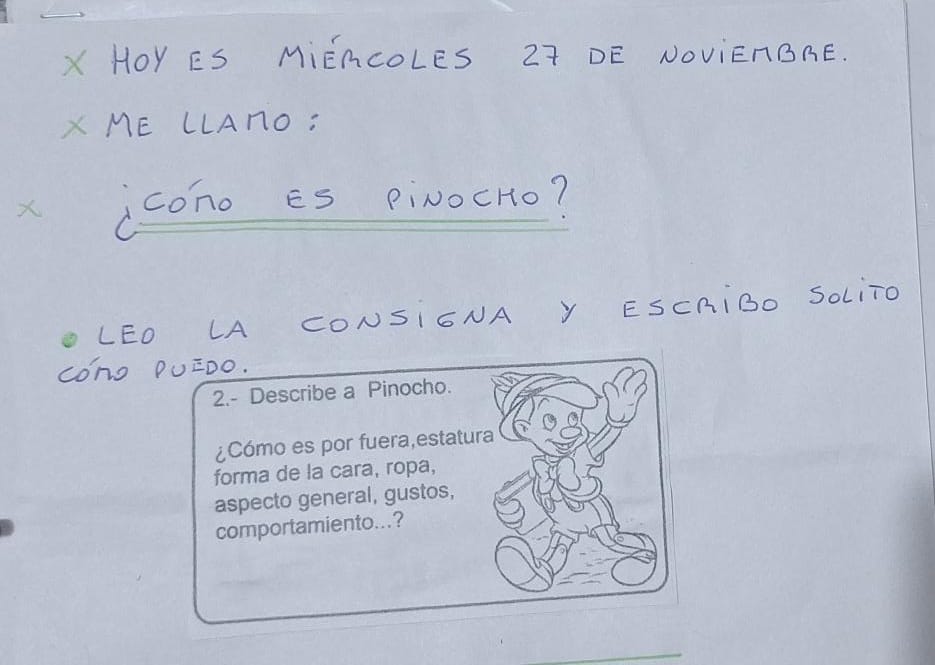 X HOY ES MIÉRCOLES 27 DE NOVIEMBRE.
X ME LLAMO:
X ¿CÓMO ES PINOCHO?
• LEO LA CONSIGNA Y ESCRIBO SOLITO
CÓMO PUEDO.
2.- Describe a Pinocho.
¿Cómo es por fuera,estatura
forma de la cara, ropa,
aspecto general, gustos,
comportamiento...?